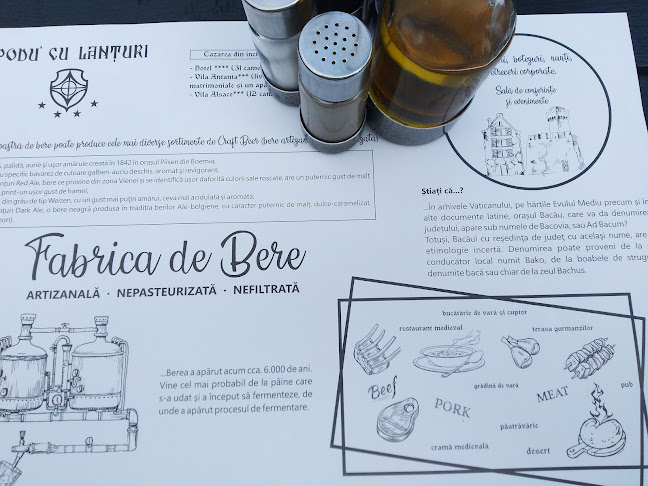 PODU' CU LANȚURI
Cazarea din inci
- Dotel **** (31 came
- Vila Antanta*** (liv
matrimoniale și un apa
- Vila Alsace*** (12 cam
botezuri, nunți,
petreceri corporate.
Sală de conferințe
și evenimente
noastră de bere poate produce cele mai diverse sortimente de Craft Beer (bere artizanală
, palidă, aurie și ușor amăruie creata în 1842 în orașul Pilsen din Boemia.
specific bavarez de culoare galben-auriu deschis, aromat și revigorant.
anțuri Red Ale, bere ce provine din zona Vienei și se identifică ușor datorită culorii sale roșcate, are un puternic gust de malț
print-un ușor gust de hamei.
din grâu de tip Weizen, cu un gust mai puțin amărui, ceva mai acidulată și aromată.
anțuri Dark Ale, o bere neagră produsă în tradiția berilor Ale-belgiene, cu caracter puternic de malț, dulce caramelizat
Fabrica de Bere
ARTIZANALĂ · NEPASTEURIZATĂ · NEFILTRATĂ
...Berea a apărut acum cca. 6.000 de ani.
Vine cel mai probabil de la pâine care
s-a udat și a început să fermenteze, de
unde a apărut procesul de fermentare.
Știați că...?
...în arhivele Vaticanului, pe hărțile Evului Mediu precum și în
alte documente latine, orașul Bacău, care va da denumirea
județului, apare sub numele de Bacovia, sau Ad Bacum?
Totuși, Bacăul cu reședința de județ cu același nume, are o
etimologie incertă. Denumirea poate proveni de la
conducător local numit Bako, de la boabele de strugu
denumite bacă sau chiar de la zeul Bachus.
bucătărie de vară și cuptor
restaurant medieval
terasa gurmanzilor
Beef
grădină de vară
PORK
MEAT
pub
păstrăvărie
cramă medievală
desert